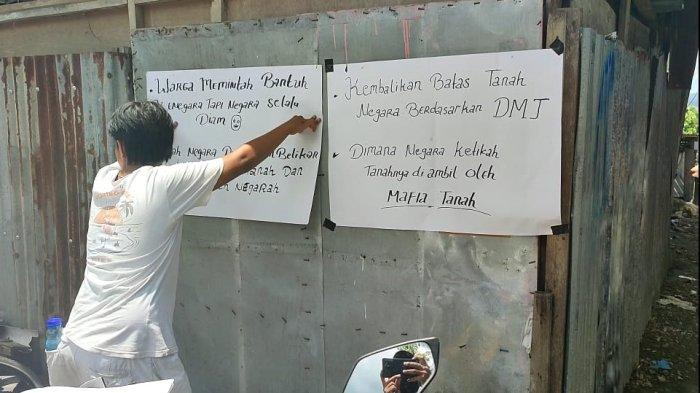 Warga Memintah Bantuh
Negara Tapi Negara Selalu
Diam
Negara Belikan
Tanah Dan
Negarah
Kembalikan Batas Tanah
Negara Berdasarkan DMJ
Dimana Negara Ketikah
Tanahnya di ambil oleh
Mafia Tanah